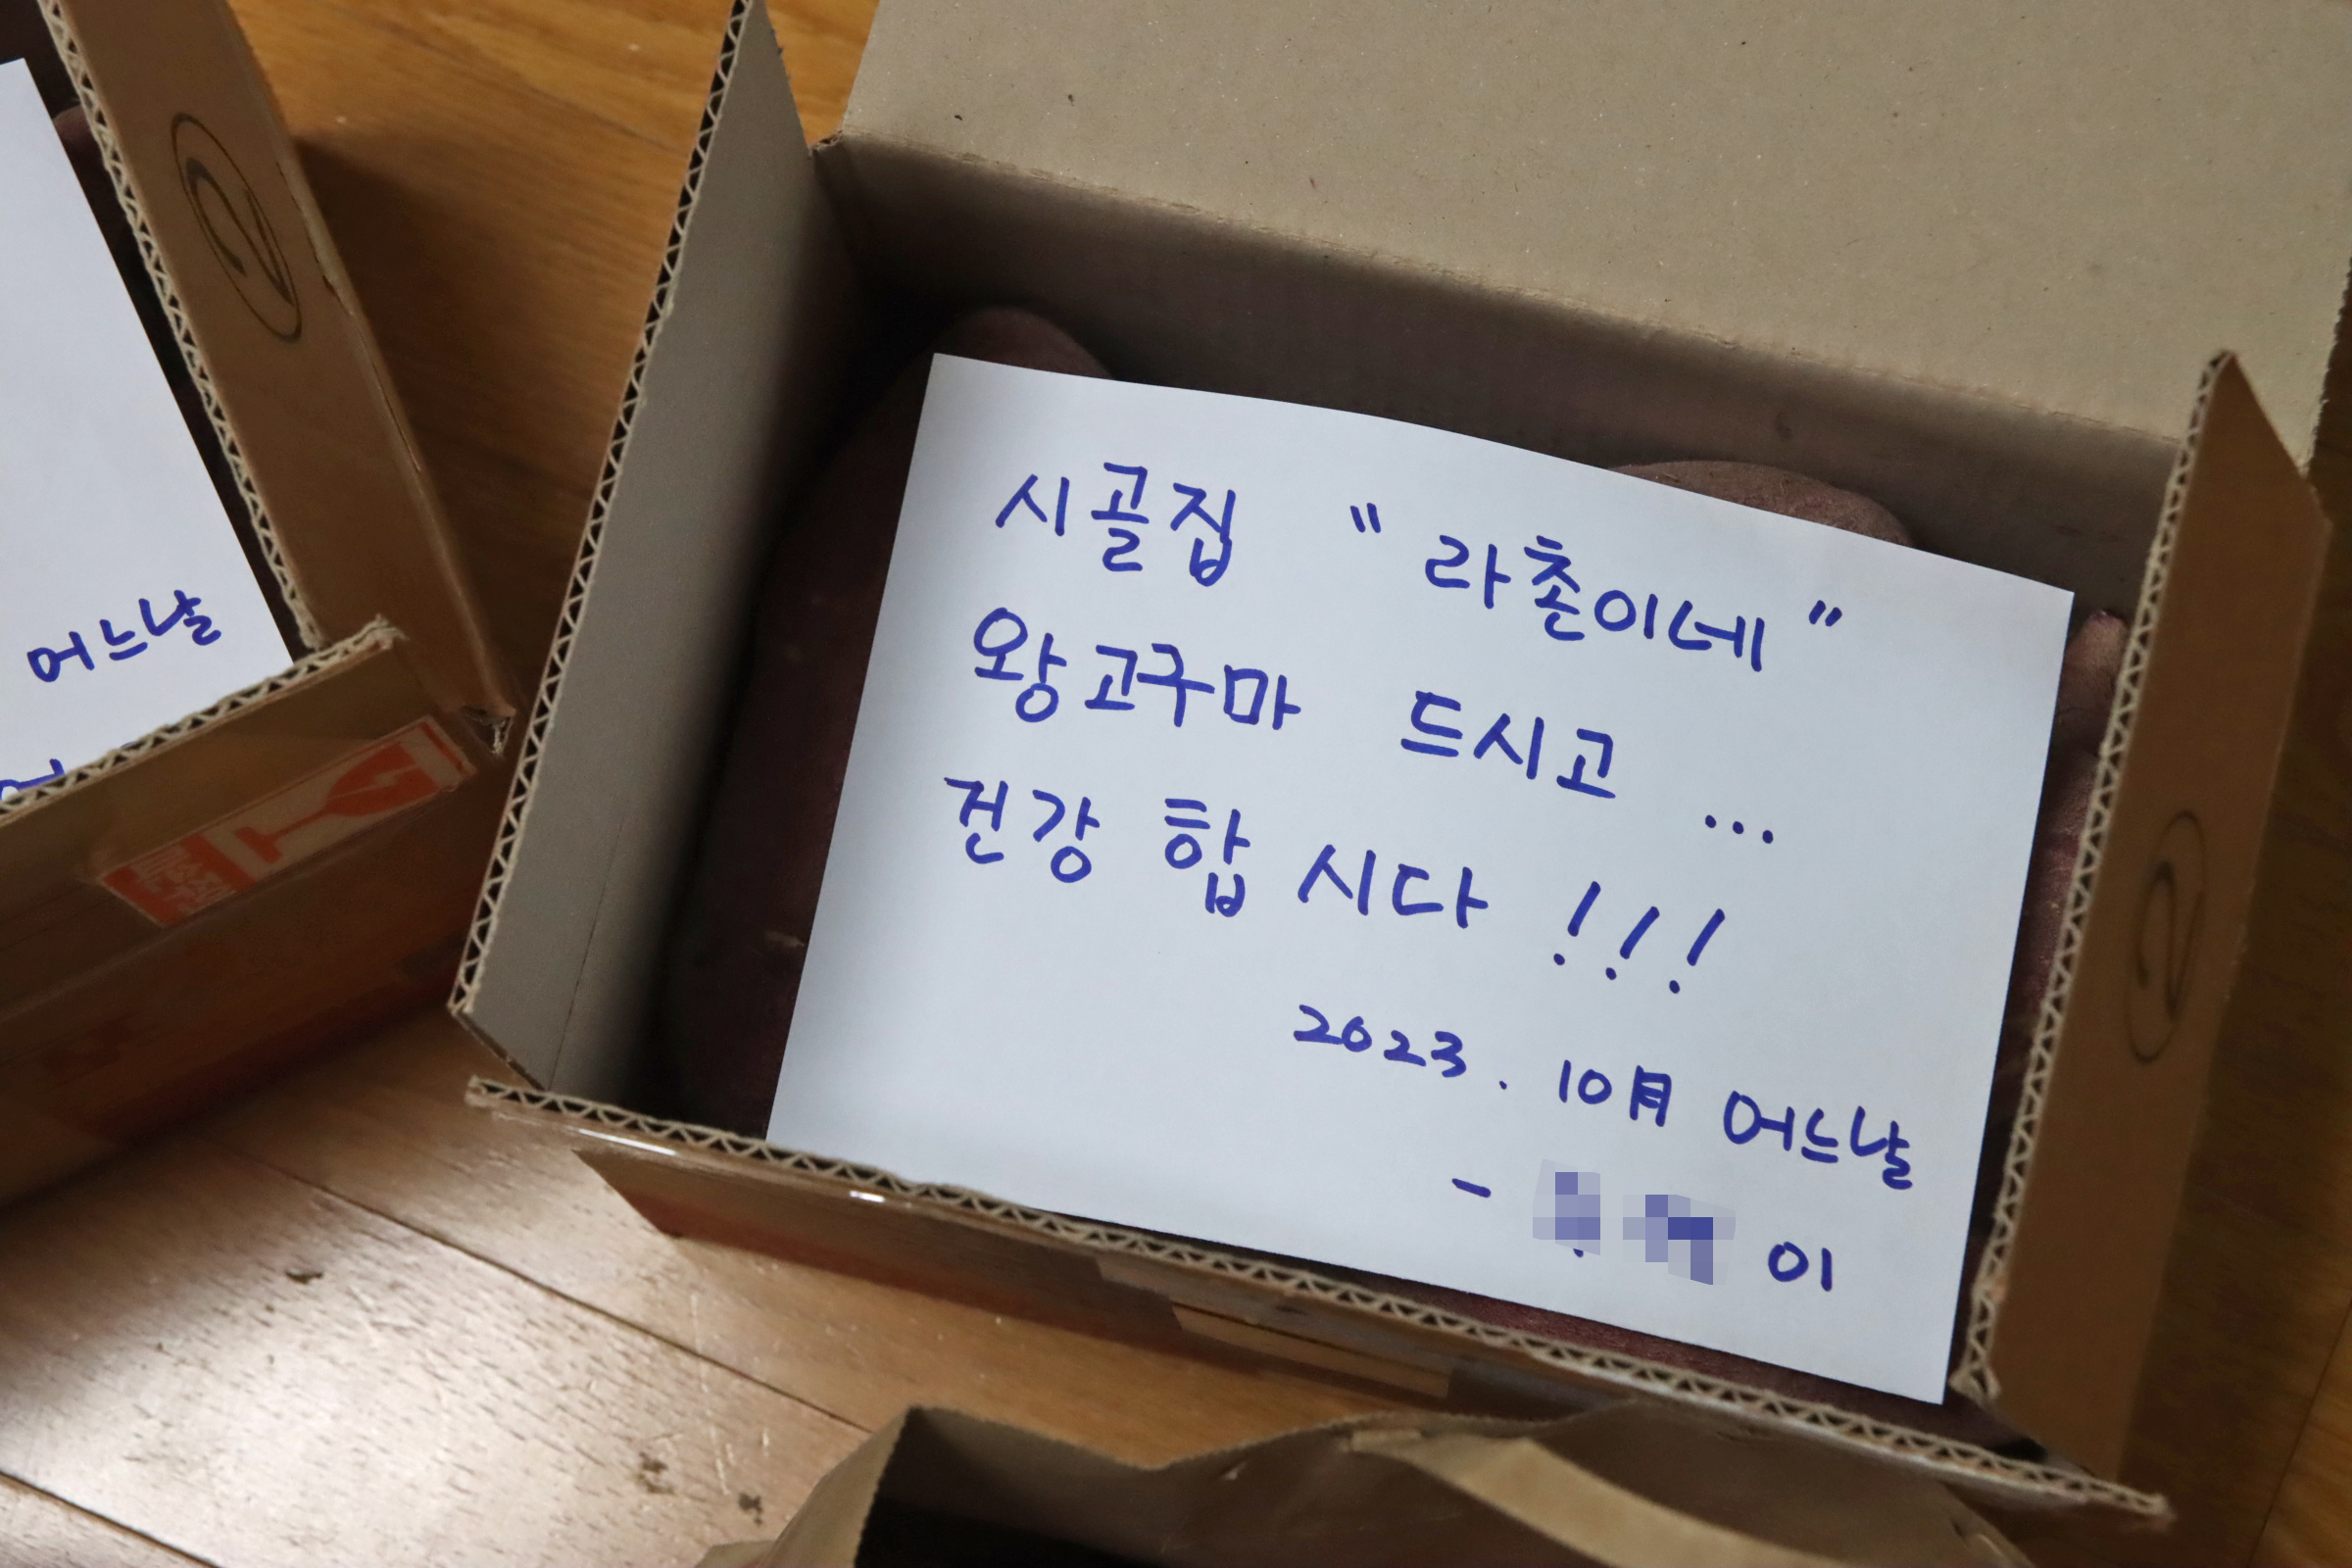 시골집 "라촌이네"
왕고구마 드시고 ...
건강 합시다 !!!
2023. 10月 어느날
- 이
어느날
2
2